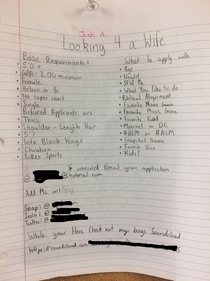 Josh A.
Looking 4 a Wife
Basic Requirements:
What to apply with
• 5'0 +
• Age
• GPA: 2.0 minimum
• Female
• Hetero or Bi
• What You like to do
• Single
• Political Alignment
• Favorite Movie Genre
Preferred Applicants are
• Favorite Music Genre
• Thicc
• Favorite Food
• Shoulder-Length Hair
• Marvel or DC
• 5'
• #BLM or #ALM
• Into Black Kings
• Christian
• Likes Sports
• Kids?
Email your application
@
hotmail.com
Add Me on
Snap: @
Insta: @
Twitter: @
While your Here Check out my boys Soundcloud
https://soundcloud.com